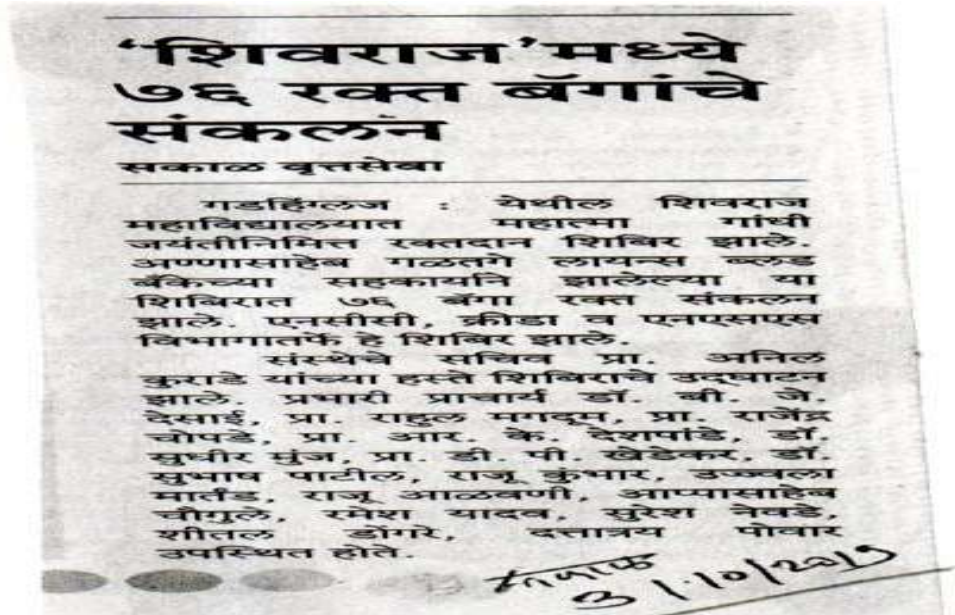 ‘शिवराज’मध्ये
७६ रक्त बॅगांचे
संकलन
सकाळ वृत्तसेवा
गडहिंग्लज : येथील शिवराज
महाविद्यालयात महात्मा गांधी
जयंतीनिमित्त रक्तदान शिबिर झाले.
अण्णासाहेब गळतगे लायन्स ब्लड
बँकेच्या सहकार्याने झालेल्या या
शिबिरात ७६ बॅगा रक्त संकलन
झाले. एनसीसी, क्रीडा व एनएसएस
विभागातर्फे हे शिबिर झाले.
संस्थेचे सचिव प्रा. अनिल
कुराडे यांच्या हस्ते शिबिराचे उद्‌घाटन
झाले. प्रभारी प्राचार्य डॉ. बी. जे.
देसाई, प्रा. राहुल मगदूम, प्रा. राजेंद्र
चोपडे, प्रा. आर. के. देशपांडे, डॉ.
सुधीर मुंज, प्रा. डी. पी. खेडेकर, डॉ.
सुभाष पाटील, राजू कुंभार, उज्ज्वला
मार्तंड, राजू आळवणी, आप्पासाहेब
चौगुले, रमेश यादव, सुरेश नेवडे,
शीतल डोंगरे, दत्तात्रय पोवार
उपस्थित होते.
सकाळ